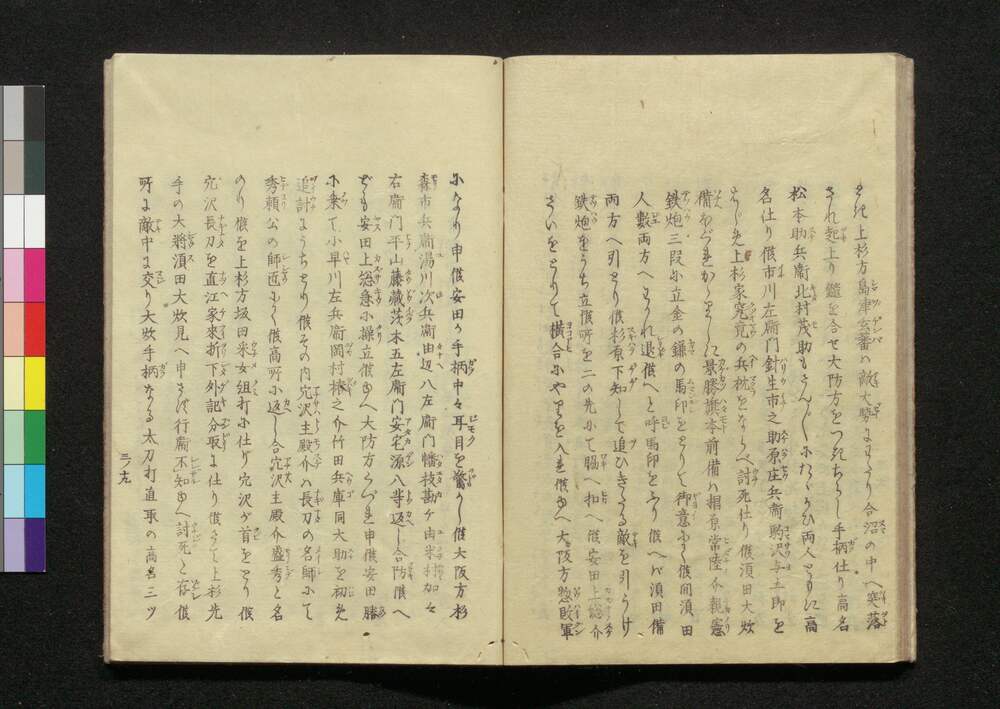 上杉方島津玄蕃ハ敵大勢にわたり合沼の中へ突落
され起上り鑓を合せ大防方をつきちらし手柄仕り高名
松本助兵衛北村茂助もさんしにたゝかひ両人ともに高
名仕り候市川左衛門針生市之助原庄兵衛駒沢与五郎を
上杉家究竟の兵枕をならへ討死仕り候須田大炊
備 景勝旗本前備ハ相原常陸介親憲
鉄炮三段に立金の鎌の馬印をとりて御意 候間須田
人数両方へわかれ退候へと呼馬印をふり候へハ須田備
両方へ引とり候杉原下知して追ひきたる敵を引うけ
鉄炮をうち立候所を二の先にて脇へ扣へ候安田上総介
さいをとりて横合にやりを入連候ゆへ大阪方惣敗軍
になり申候安田の手柄中々耳目を驚し候大阪方杉
森市兵衛湯川次兵衛由辺八左衛門幡枝勘ケ由米村加々
右衛門平山藤蔵茨木五左衛門安宅源八等返し合防候へ
とも安田上総急に操立候ゆへ大防方くつれ申候安田勝
に乗て小早川左兵衛岡村椿之介竹田兵庫同大助を初め
追討にうちとり候その内穴沢主殿介ハ長刀の名師にて
秀頼公の師匠にて候高所に返し合穴沢主殿介盛秀と名
のり候を上杉方坂田采女組打に仕り穴沢が首をとり候
穴沢長刀を直江家来折下外記分取に仕り候さて上杉先
手の大将須田大炊見へ申さす行衛不知ゆへ討死と存候
所に敵中に交り大敗手柄なる太刀打直取の高名三ツ
三ノ九